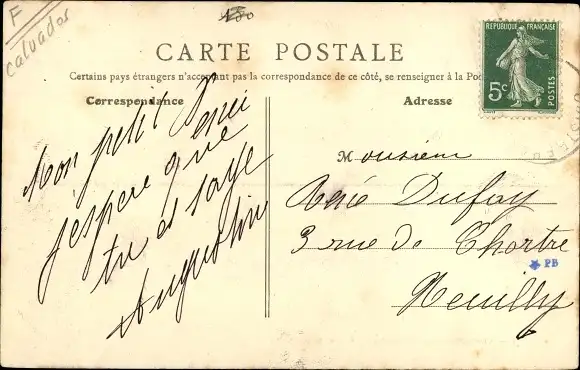 F
Calvados
CARTE POSTALE
Certains pays étrangers n'acceptent pas la correspondance de ce côté, se renseigner à la Poste
Correspondance
Adresse
RÉPUBLIQUE FRANÇAISE
5c
POSTES
Mon petit René
j'espère que
tu es sage
Augustin
Monsieur
René Dufay
3 rue de Chartre
Neuilly
PB